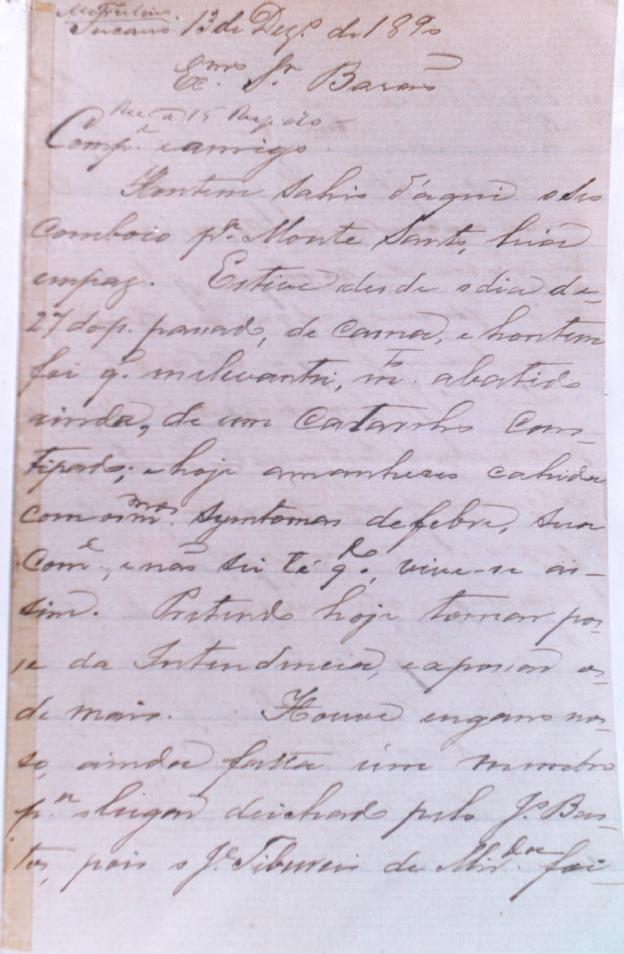 Tucano 13 de Dez.º de 1890
Ex.mo Sr. Barão
Comp.e e amigo.
Hontem sahio d'aqui o seo
comboio p.a Monte Santo, hia
empaz. Estive desde o dia de
27 do p. passado, de cama, e hontem
foi q.' melevantei, m.to abatido
ainda, de um Catarrho Cons-
tipado; e hoje amanheceo cahida
com os m.mos symtomas defebre, sua
Com.e, e não sei té q.do, vive-se as-
sim. Pretendo hoje tomar pos-
se da Intendencia, e apossar os
de mais. Houve engano nos-
so, ainda falta um membro
p.a o lugar deichado pelo J.e Bas-
tos, pois o J.e Tiburcio de Mir.da foi